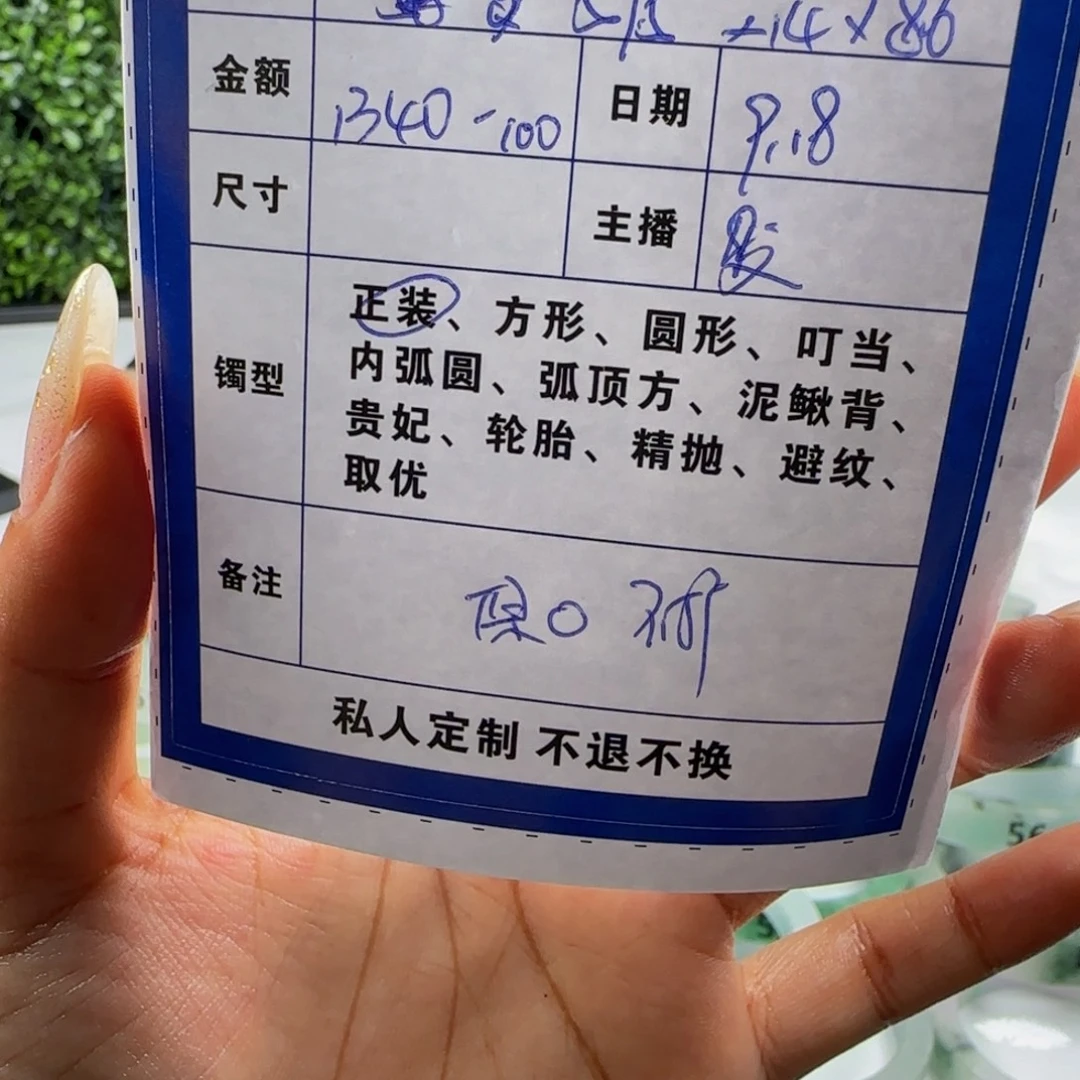 14×86
金额 1340-100 日期 9.18
尺寸 主播
镯型 正装、方形、圆形、叮当、
内弧圆、弧顶方、泥鳅背、
贵妃、轮胎、精抛、避纹、
取优
备注 保0
私人定制 不退不换
56